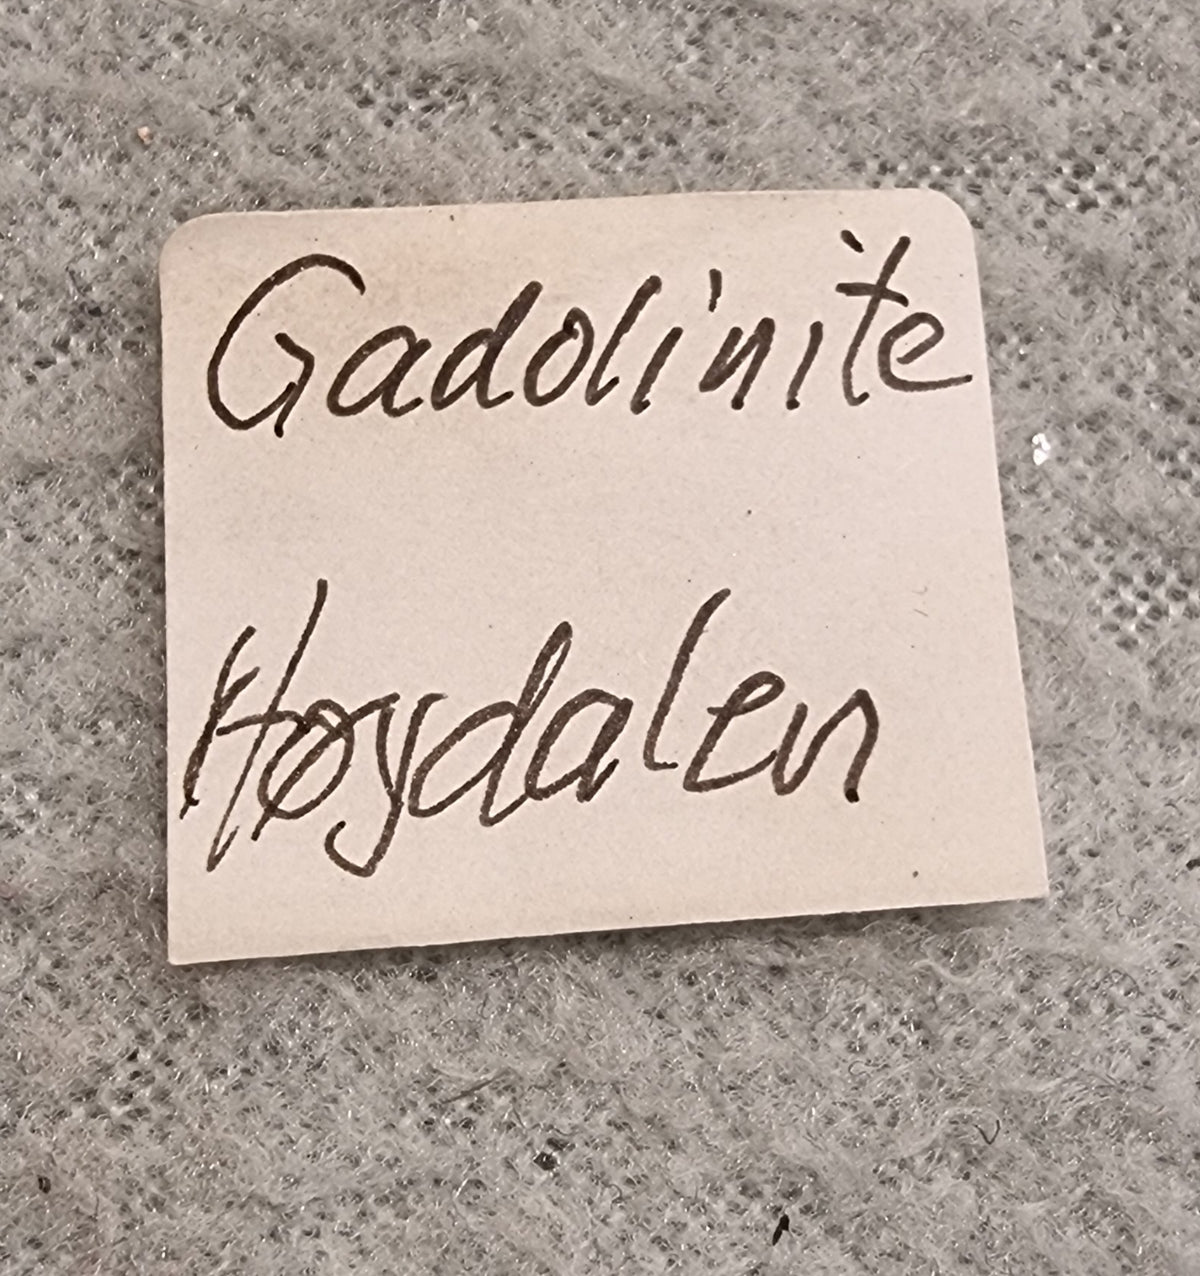 Gadolinite
Høydalen